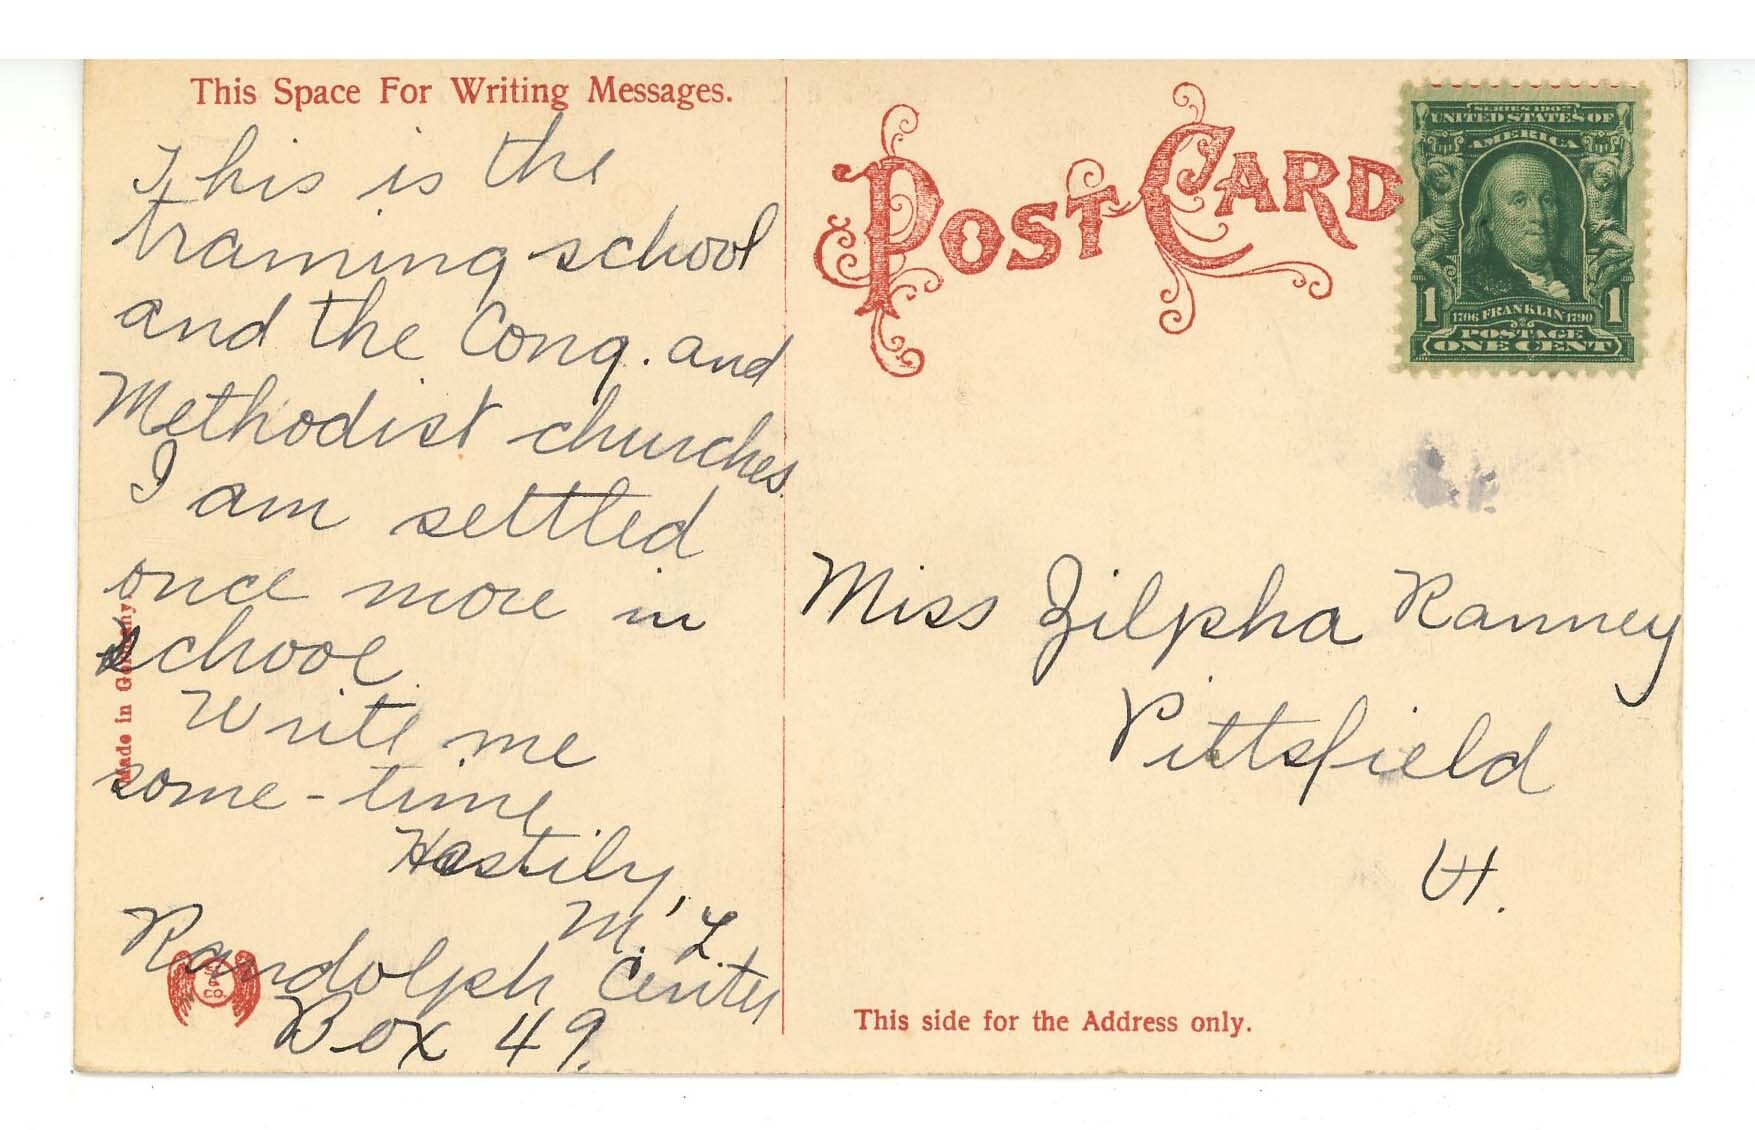 This Space For Writing Messages.
This is the
training school
and the Cong. and
Methodist churches.
I am settled
once more in
school.
Write me
some-time
Hastily,
M. L.
Randolph Center
Box 49.
Made in Germany.
CO.
POST CARD
SERIES 1902
UNITED STATES OF
AMERICA
1 1706 FRANKLIN 1790 1
POSTAGE
ONE CENT
Miss Zilpha Ranney
Pittsfield
Vt.
This side for the Address only.